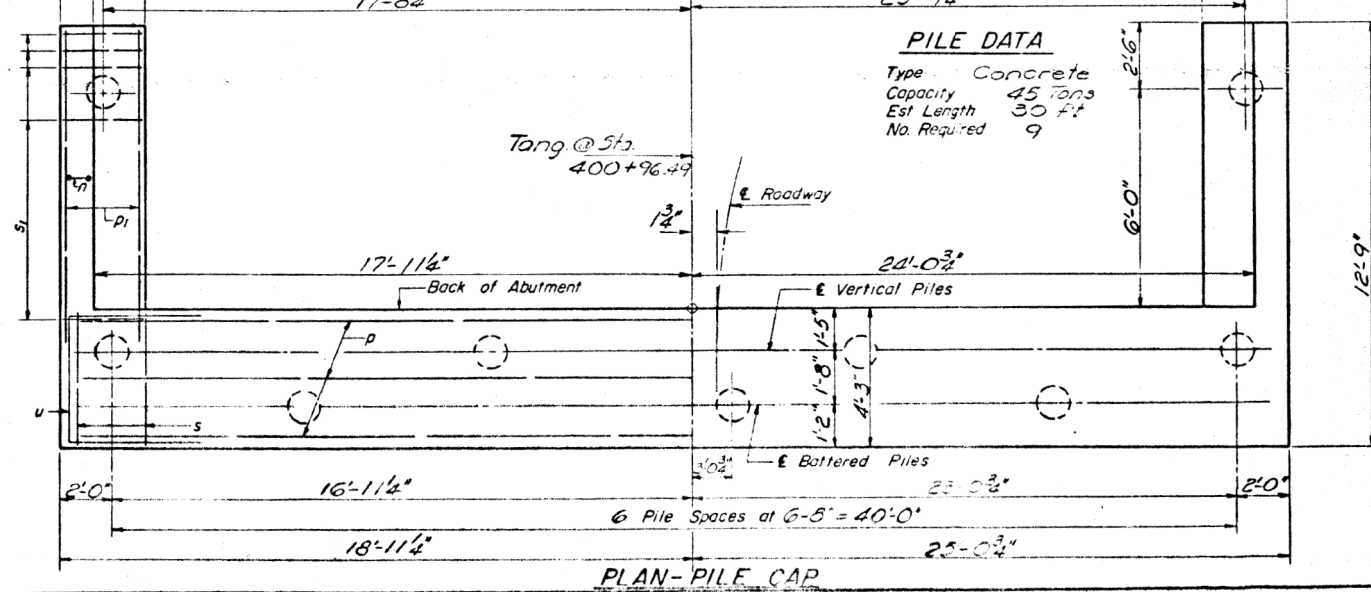 PILE DATA
Type Concrete
Capacity 45 Tons
Est Length 30 ft
No. Required 9
2'-6"
6'-0"
12'-9"
Tang. @ Sta.
400+96.49
1¾"
℄ Roadway
s1
p1
17'-11¼"
24'-0¾"
Back of Abutment
℄ Vertical Piles
p
1'-5"
1'-8"
1'-2"
4'-3"
u
s
℄ Battered Piles
2'-0"
16'-11¼"
23'-0¾"
2'-0"
6 Pile Spaces at 6'-8" = 40'-0"
18'-11¼"
25'-0¾"
PLAN-PILE CAP